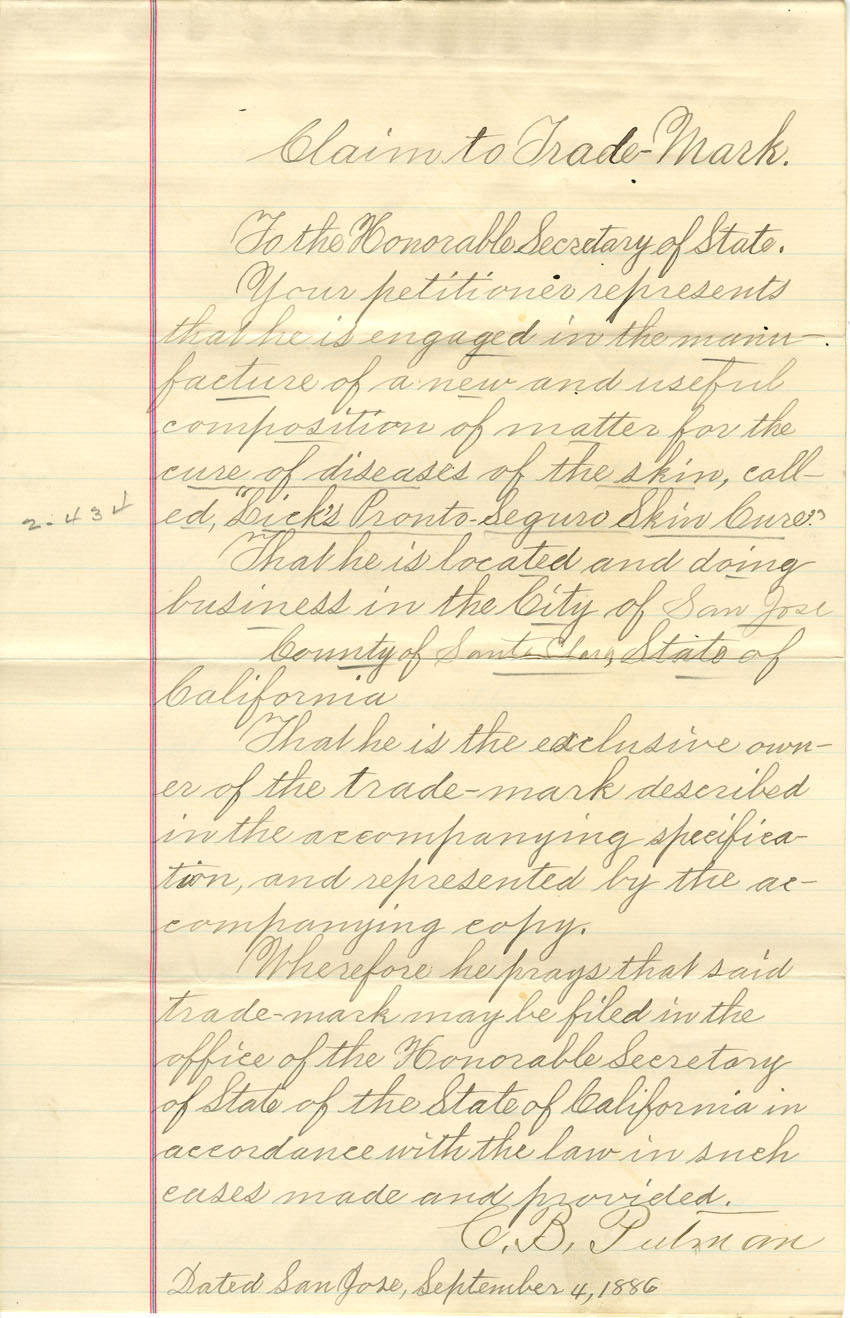 Claim to Trade-Mark.
To the Honorable Secretary of State.
Your petitioner represents
that he is engaged in the manu-
facture of a new and useful
composition of matter for the
cure of diseases of the skin, call-
2-434
ed, "Lick's Pronto-Seguro Skin Cure."
That he is located and doing
business in the City of San Jose
County of Santa Clara, State of
California
That he is the exclusive own-
er of the trade-mark described
in the accompanying specifica-
tion, and represented by the ac-
companying copy.
Wherefore he prays that said
trade-mark may be filed in the
office of the Honorable Secretary
of State of the State of California in
accordance with the law in such
cases made and provided.
C. B. Putman
Dated San Jose, September 4, 1886